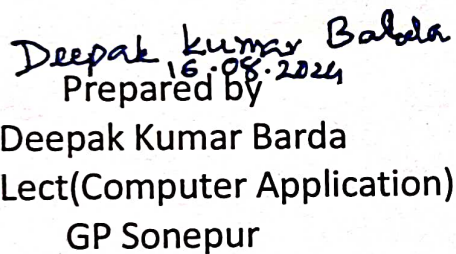 Deepak Kumar Barda
16.08.2024
Prepared by
Deepak Kumar Barda
Lect(Computer Application)
GP Sonepur